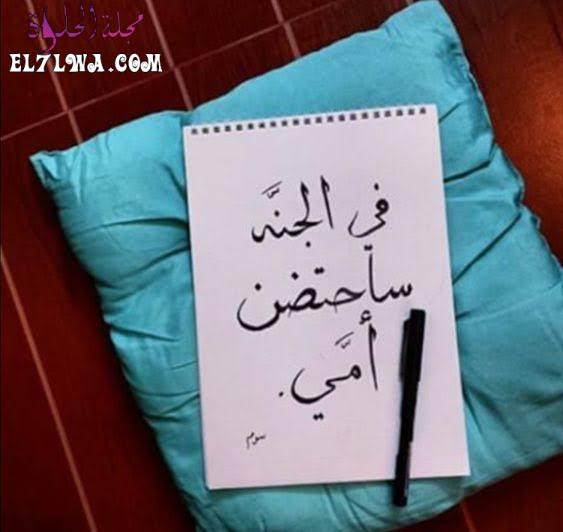 مجلة الحلوة
EL7LWA.COM
في الجنَّه
سأحتضن
أمَّي.
سوم